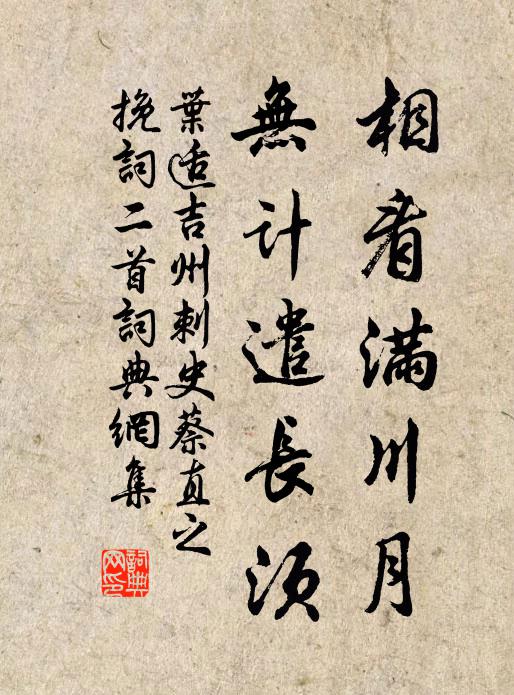 相看滿川月
無計遣長須
葉適吉州刺史蔡直之
挽詞二首詞典網集
詞典
网印